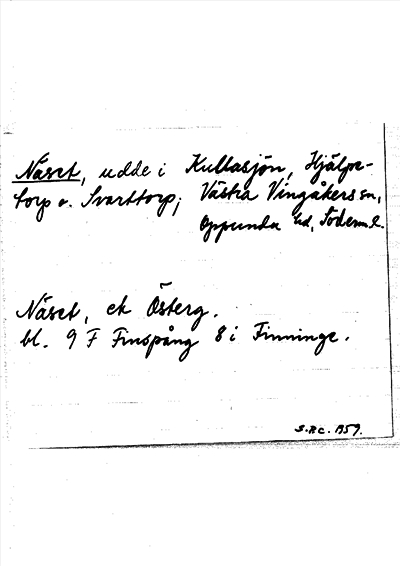 Näset, udde i Kullasjön, Hjälpe-
torp o. Svarttorp, Västra Vingåkers sn,
Oppunda hd, Söderm. l.
Näset, ek Österg.
bl. 9 F Finspång 8 i Finninge.
S.P.C. 1959.